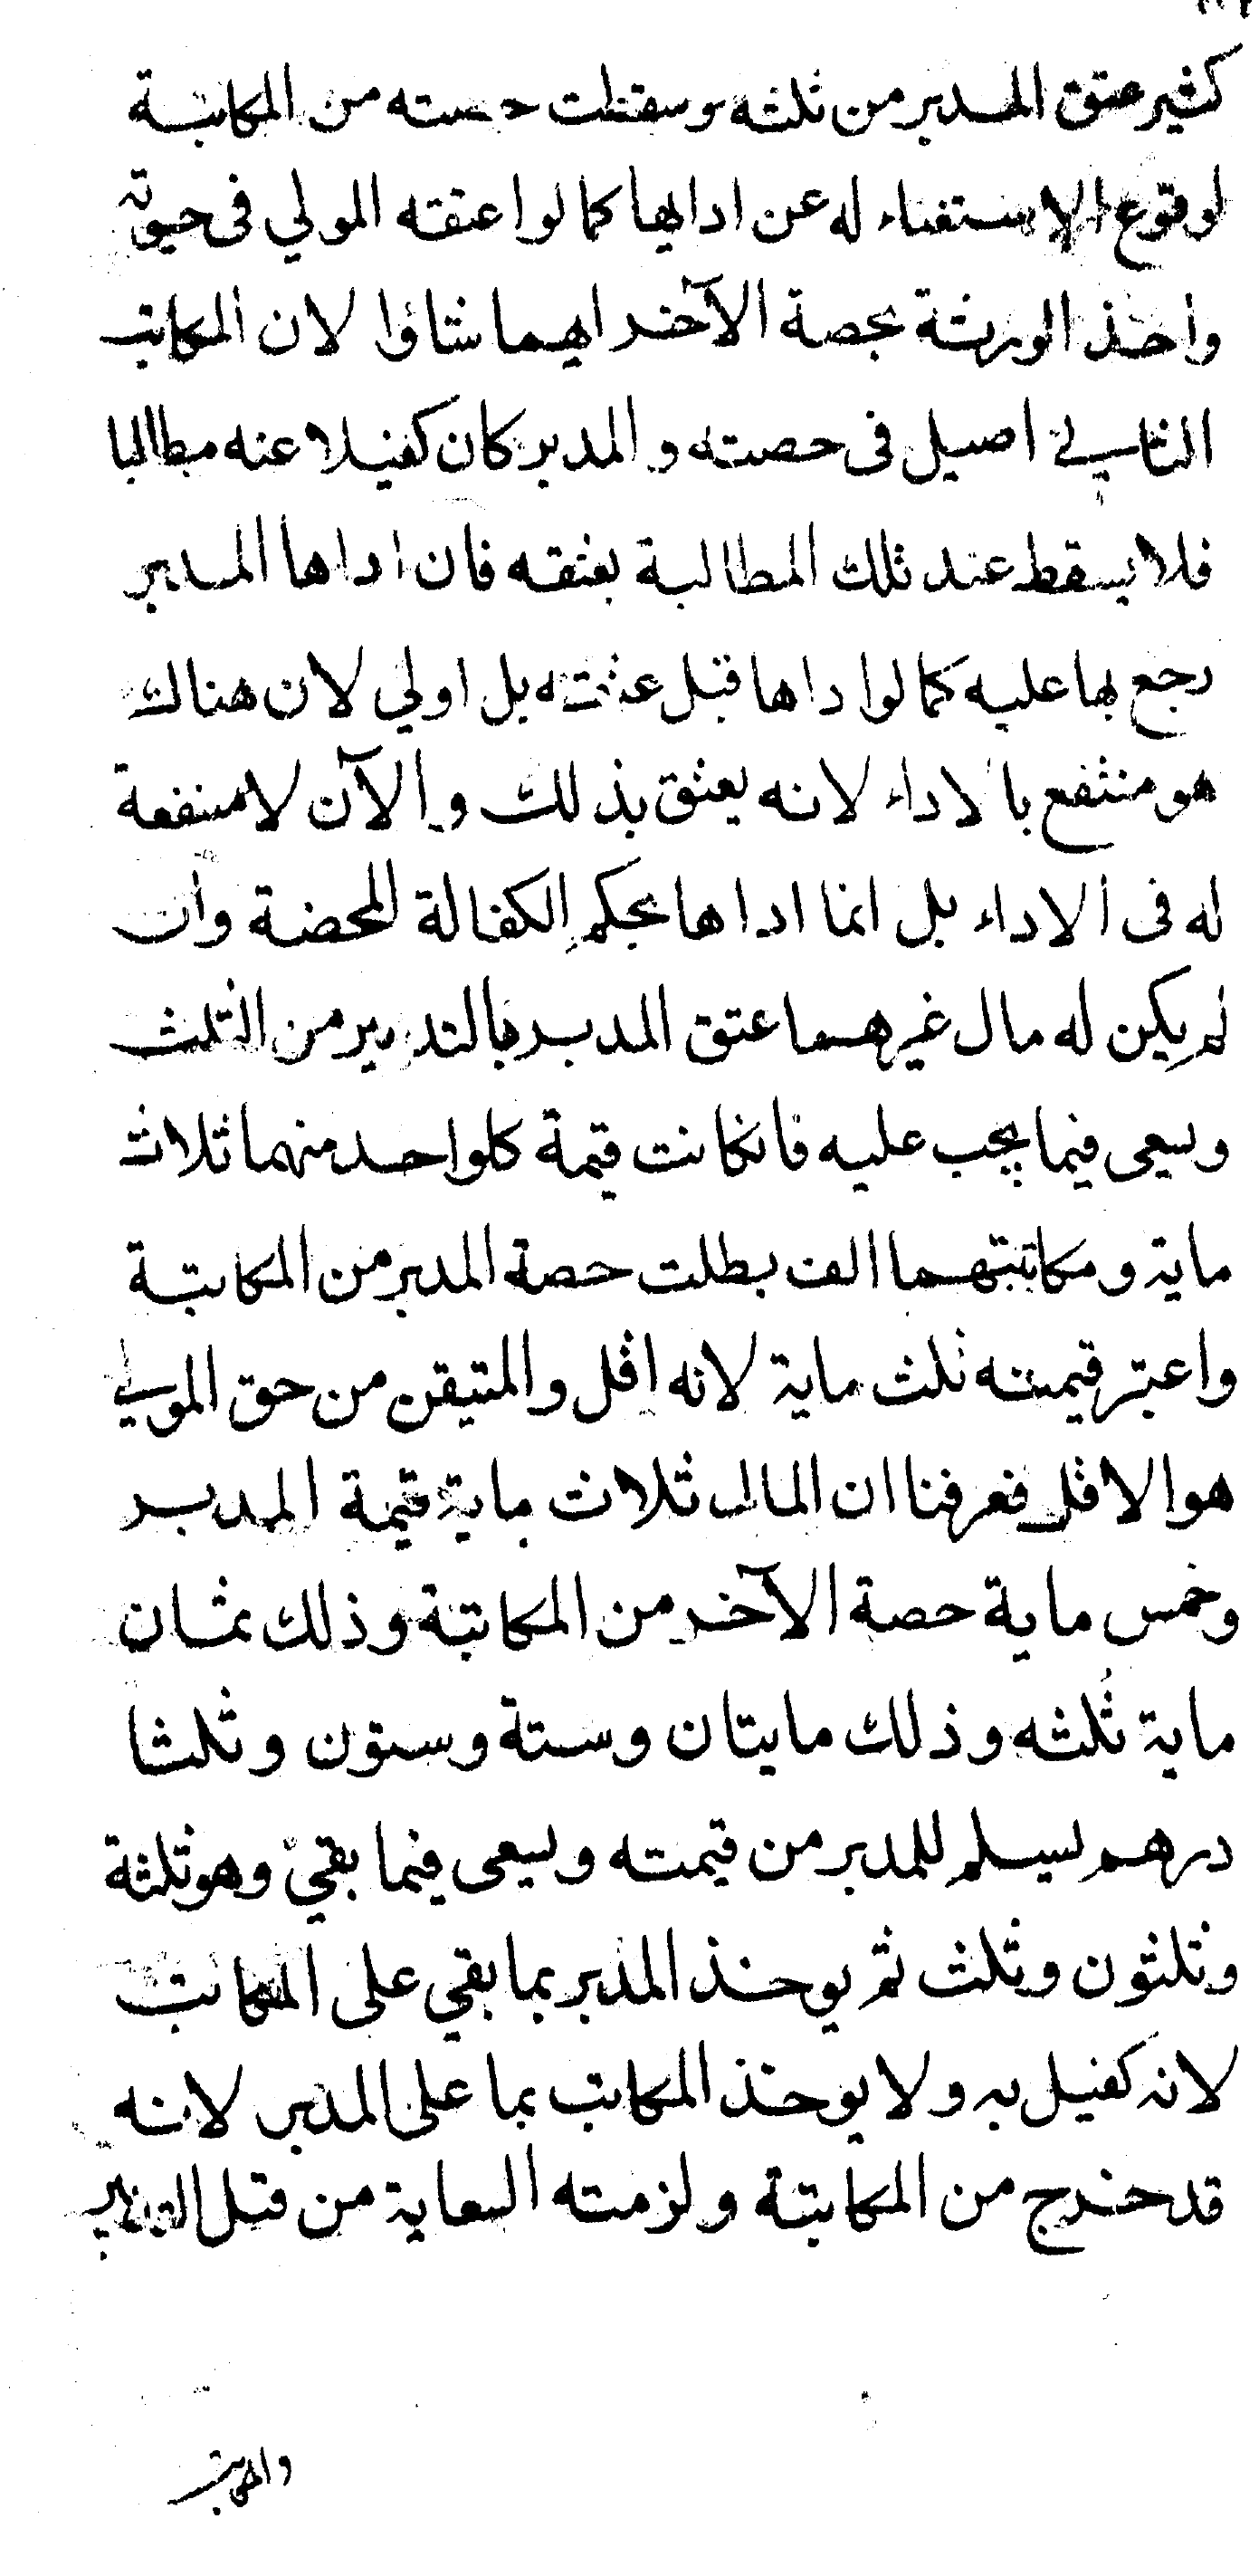 كثير عتق المدبر من ثلثه وسقطت حصته من المكاتبة
لوقوع الاستغناء له عن ادايها كما لو اعتقه المولي في حيوته
واخذ الورثة بحصة الآخر ايهما شاؤا لان المكاتب
الثاني اصيل في حصته والمدبر كان كفيلا عنه مطالبا
فلا يسقط عند تلك المطالبة بعتقه فان اداها المدبر
رجع بها عليه كما لو اداها قبل عتقه بل اولي لان هناك
هو منتفع بالاداء لانه يعتق بذلك والآن لا منفعة
له في الاداء بل انما اداها بحكم الكفالة المحضة وان
لم يكن له مال غيرهما عتق المدبر بالتدبير من الثلث
وسعي فيما يجب عليه فانكانت قيمة كلواحد منهما ثلاث
ماية ومكاتبتهما الف بطلت حصة المدبر من المكاتبة
واعتبر قيمته ثلث ماية لانه اقل والمتيقن من حق المولي
هو الاقل فعرفنا ان المال ثلاث ماية قيمة المدبر
وخمس ماية حصة الآخر من المكاتبة وذلك ثمان
ماية ثُلثه وذلك مايتان وستة وستون وثلثا
درهم يسلم للمدبر من قيمته ويسعي فيما بقي وهو ثلثة
وثلثون وثلث ثم يوخذ المدبر بما بقي على المكاتب
لانه كفيل به ولا يوخذ المكاتب بما على المدبر لانه
قد خرج من المكاتبة ولزمته السعاية من قبل التدبير
والمكاتب